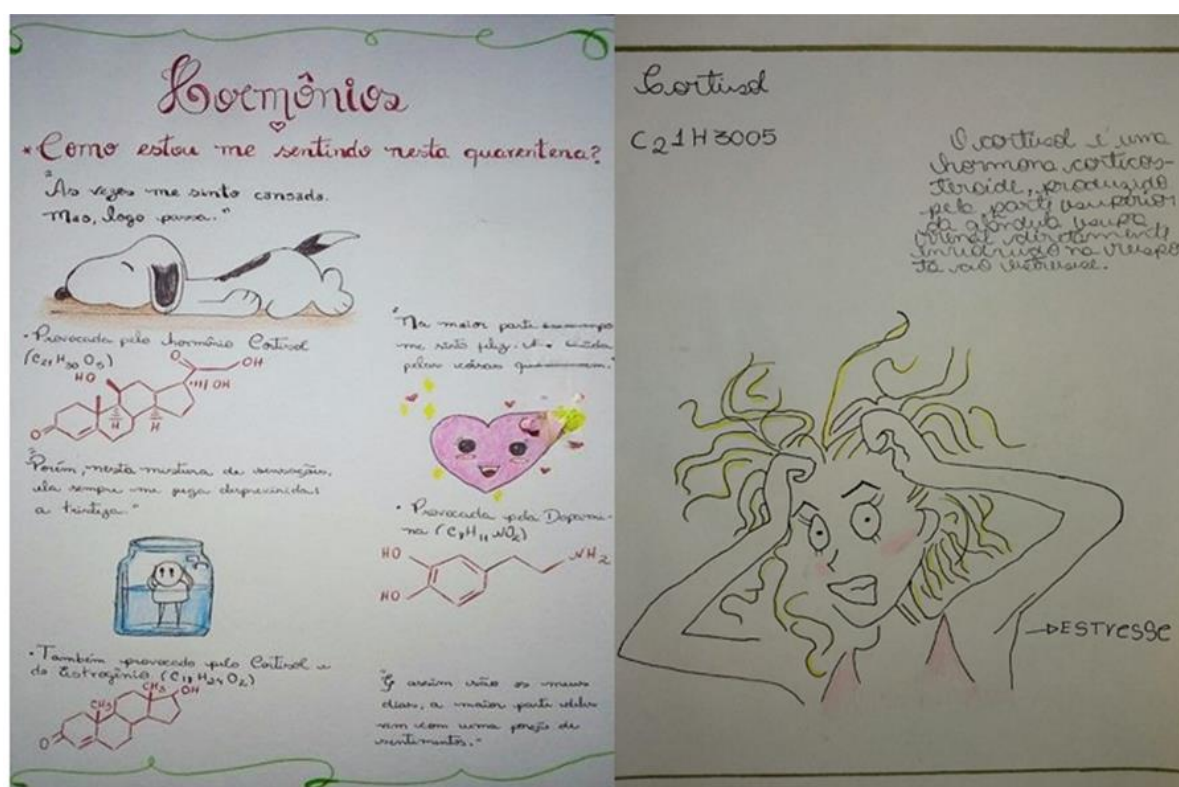 Hormônios
*Como estou me sentindo nesta quarentena?
"As vezes me sinto cansada.
Mas, logo passa."
• Provocada pelo hormônio Cortisol
(C21 H30 O5)
O
OH
HO
OH
H
H
O
"Porém, nesta mistura de sensações,
ela sempre me pega desprevinida:
a tristeza."
• Também provocado pelo Cortisol e
do Estrogênio (C18 H24 O2)
CH3
OH
CH3
O
"Na maior parte
me sinto feliz.
pelas coisas
• Provocada pela Dopami-
na (C8 H11 NO2)
HO
NH2
HO
"E assim são os meus
dias, a maior parte deles
com uma porção de
sentimentos."
Cortisol
C21H3005
O cortisol é uma
hormona corticos-
teroide, produzido
pela parte superior
da glândula supra
renal diretamente
na respos
ta ao estresse.
ESTresse